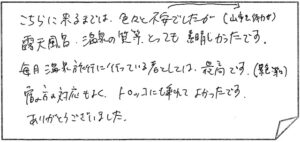 こちらに来るまでは、色々と不安でしたが(山を1つ
露天風呂、温泉の質等とっても素晴しかったです。
毎月温泉旅行に行っている者としては、最高です。(絶賛)
宿の方の対応もよく、トロッコにも乗れてよかったです。
ありがとうございました。